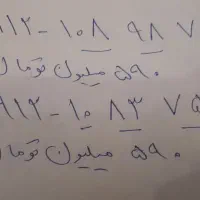 ۹۱۲ - ۱۰۸ ۹۸ ۷
۵۹۰ میلیون تومان
۹۱۲ - ۱۰ ۸۳ ۷۵
۵۹۰ میلیون تومان